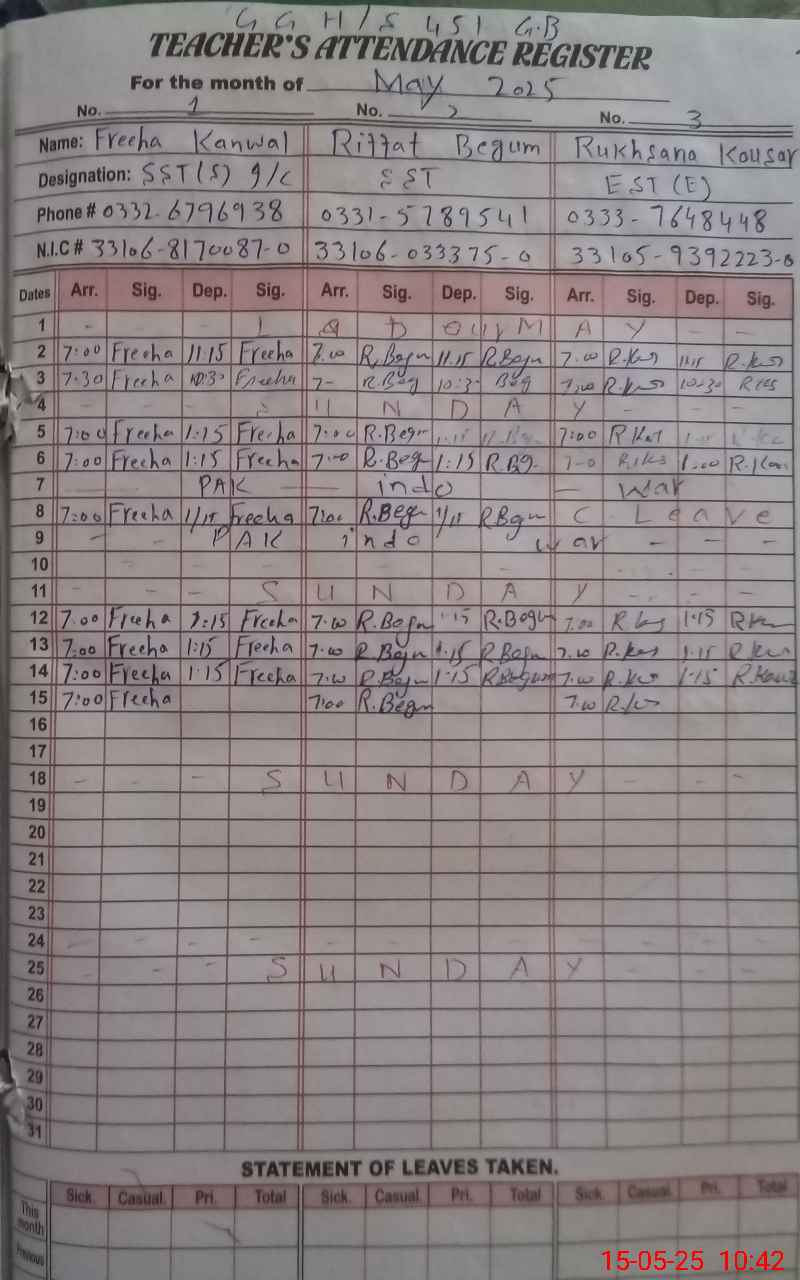 G G H/S 451 G.B
TEACHER'S ATTENDANCE REGISTER
For the month of May 2025
No. 1 No. 2 No. 3
Name: Freeha Kanwal Riffat Begum Rukhsana Kousar
Designation: SST(S) I/C SST EST (E)
Phone # 0332-6796938 0331-5789541 0333-7648448
N.I.C # 33106-8170087-0 33106-033375-0 33105-9392223-0
Dates Arr. Sig. Dep. Sig. Arr. Sig. Dep. Sig. Arr. Sig. Dep. Sig.
1 - - L a b our M A Y - -
2 7:00 Freeha 11:15 Freeha 7.00 R.Begum 11.15 R.Begum 7.00 R.Kus 11.15 R.Kus
3 7:30 Freeha 10:30 Freeha 7- R.Beg 10:30 Beg 7:00 R.Kus 10:30
4 - - - S U N D A Y - - -
5 7:00 Freeha 1:15 Freeha 7:00 R.Begm 7:00 R.Kus
6 7:00 Freeha 1:15 Freeha 7:00 R.Beg 1:15 R.Bg. 1:00
7 PAK indo war
8 7:00 Freeha 1/15 Freeha 7:00 R.Begn 1/15 R.Begn C Leave
9 - - PAK indo war - - -
10
11 - - - S U N D A Y - - -
12 7:00 Freeha 1:15 Freeha 7.00 R.Begm 15 R.Begm 7.00 R.Kus 1:15 R.Kus
13 7:00 Freeha 1:15 Freeha 7.00 R.Begm 1.15 R.Begm 7.00 R.Kus 1.15 R.Kus
14 7:00 Freeha 1:15 Freeha 7.00 R.Begm 1:15 R.Begum 7.00 R.Kus 1:15 R.Kous
15 7:00 Freeha 7:00 R.Begm 7.00 R.Kus
16
17
18 - - - S U N D A Y - - -
19
20
21
22
23
24 - - - - - - - - - -
25 - - - S U N D A Y - - -
26
27
28
29
30
31
STATEMENT OF LEAVES TAKEN.
Sick. Casual. Pri. Total Sick. Casual. Pri. Total Sick. Casual. Pri. Total
This month
Previous
15-05-25 10:42